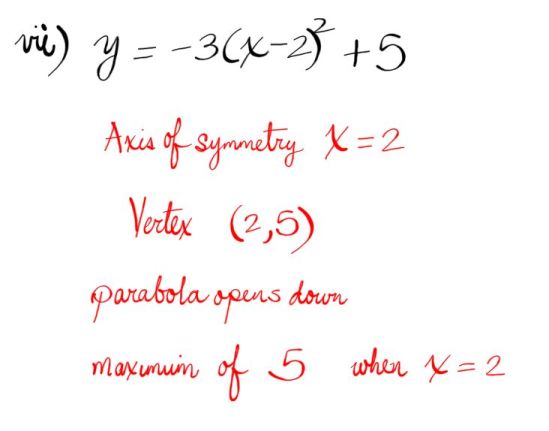 vii) y = -3(x-2)² + 5
Axis of symmetry x = 2
Vertex (2,5)
parabola opens down
maximum of 5 when x = 2